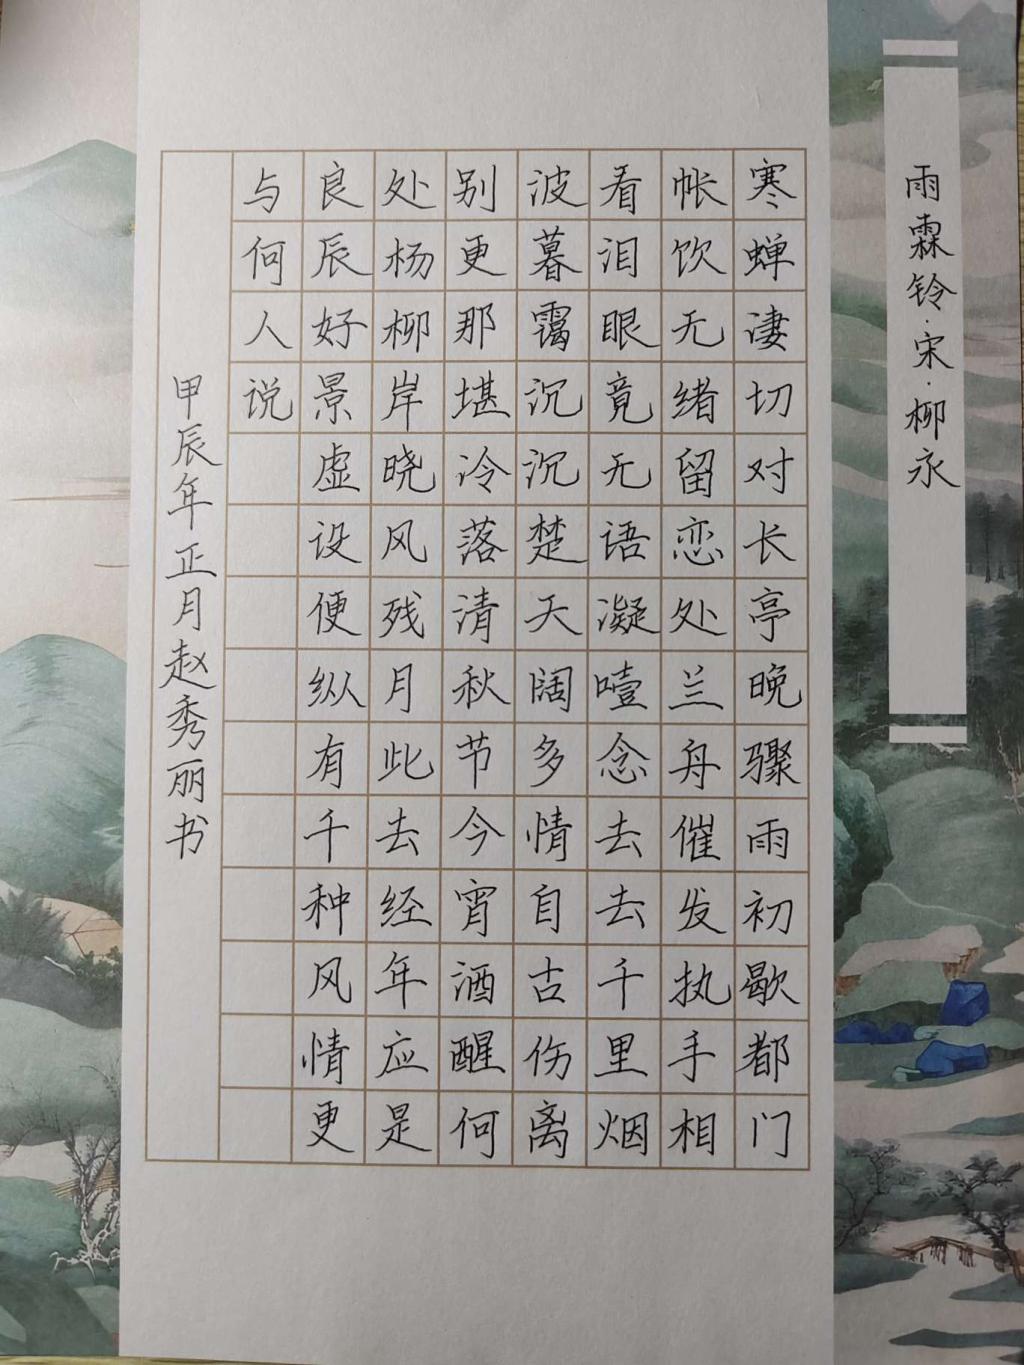 雨霖铃·宋·柳永
寒蝉凄切对长亭晚骤雨初歇都门
帐饮无绪留恋处兰舟催发执手相
看泪眼竟无语凝噎念去去千里烟
波暮霭沉沉楚天阔多情自古伤离
别更那堪冷落清秋节今宵酒醒何
处杨柳岸晓风残月此去经年应是
良辰好景虚设便纵有千种风情更
与何人说
甲辰年正月赵秀丽书